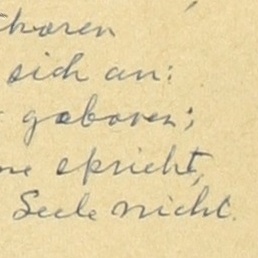 sich an:
geboren;
spricht,
Seele nicht.